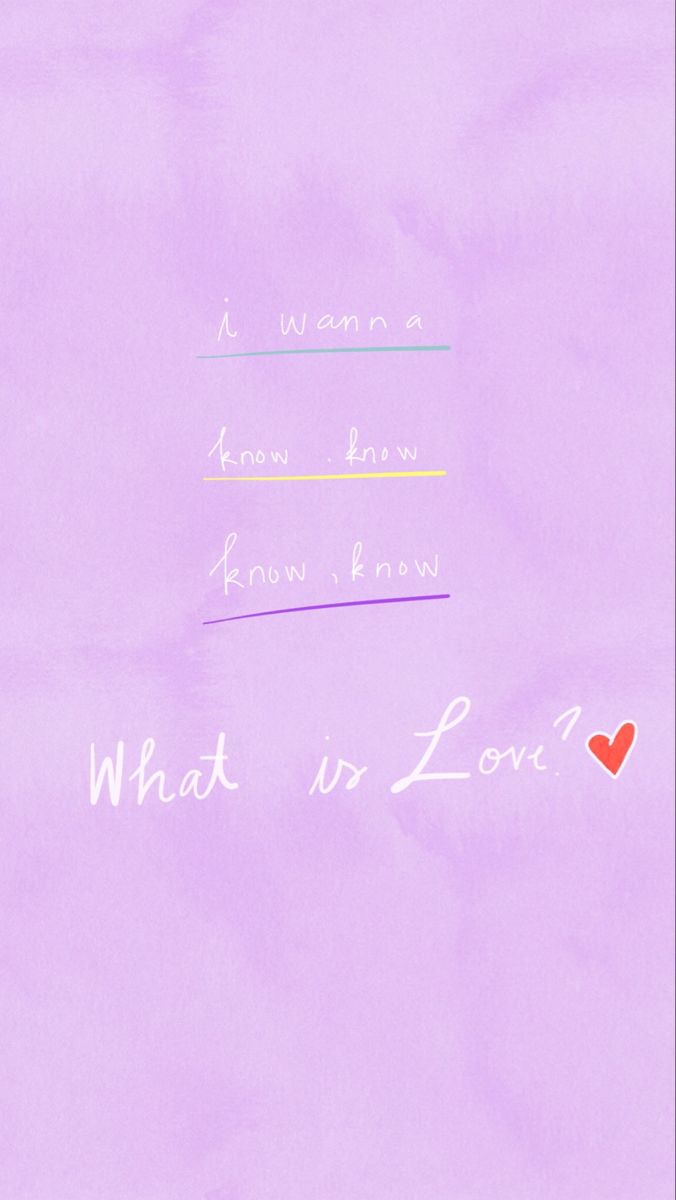 i wanna
know . know
know , know
What is Love?